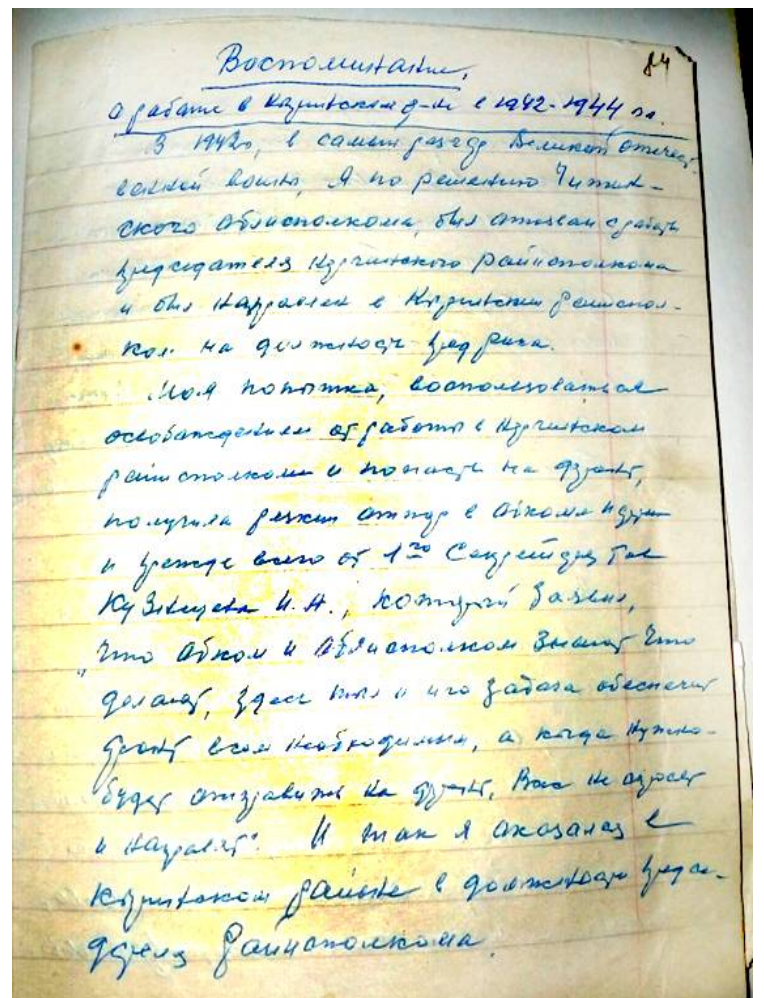 84
Воспоминание,
о работе в Кыринском р-не в 1942-1944 гг.
В 1942г, в самый разгар Великой отечест-
венной войны, Я по решению Читин-
ского облисполкома, был отозван с работы
председателя Нерчинского райисполкома
и был направлен в Кыринский райиспол-
ком на должность пред рика.
Моя попытка, воспользоваться
освобождением от работы в Нерчинском
райисполкоме и попасть на фронт,
получила резкий отпор в обкоме партии
и прежде всего от 1го Секретаря тов
Кузнецова И.А., который заявил,
"что обком и облисполком знают что
делают, здесь тыл и его задача обеспечить
фронт всем необходимым, а когда нужно-
будет отправить на фронт, Вас не спросят
и направят". И так я оказался в
Кыринском районе в должности предсе-
дателя райисполкома.